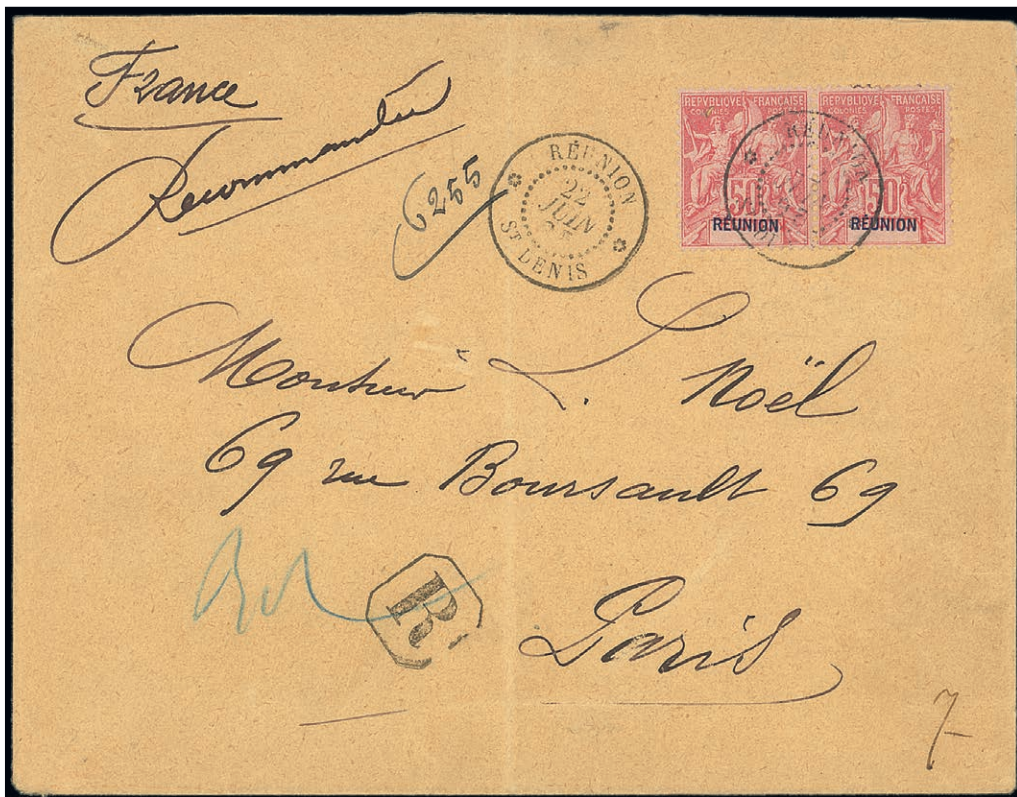 France
Recommandée
6255
RÉUNION
22
JUIN
ST DENIS
REPUBLIQUE FRANÇAISE
COLONIES POSTES
50c
RÉUNION
REPUBLIQUE FRANÇAISE
COLONIES POSTES
50c
RÉUNION
RÉUNION
Monsieur L. Noël
69 rue Boursault 69
R
Paris
7